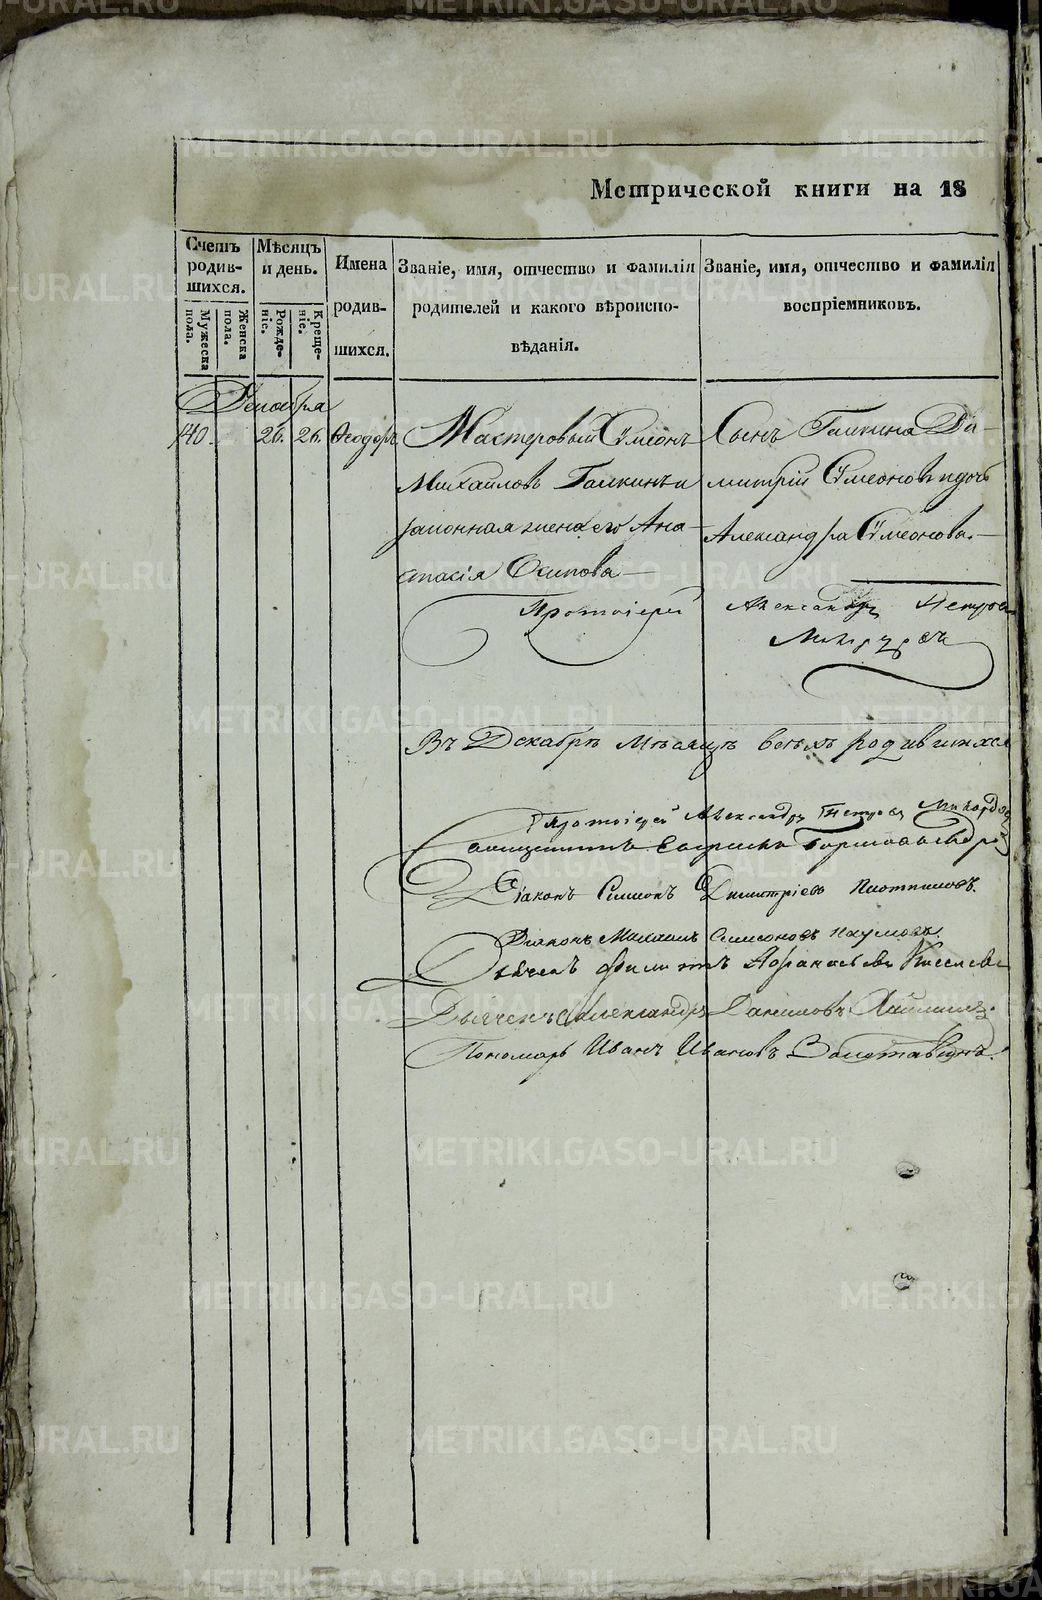 METRIKI.GASO-URAL.RU
Метрической книги на 18
Счетъ родив- шихся.
Мужеска пола.
Женска пола.
Мѣсяцъ и день.
Рожде- ніе.
Креще- ніе.
Имена родив- шихся.
Званіе, имя, отчество и фамилія родителей и какого вѣроиспо- вѣданія.
Званіе, имя, отчество и фамилія воспріемниковъ.
Декабря
140. 26. 26. Ѳеодоръ
Мастеровый Сѵмеонъ
Михайловъ Галкинъ и
законная жена его Ана-
стасія Осипова
Сынъ Галкина Ди-
митрій Сѵмеоновъ и дочь
Александра Сѵмеонова.
Протоіерей Александръ Петровъ
Въ Декабрѣ мѣсяцѣ всѣхъ родившихся
Протоіерей Александръ Петровъ
Священникъ
Діаконъ Симеонъ Димитріевъ Плотниковъ.
Діаконъ Михаилъ Симеоновъ Наумовъ.
Дьячекъ Филиппъ Афанасьевъ Киселевъ
Дьячекъ Александръ Даниловъ
Пономарь Иванъ Ивановъ Золотавинъ.